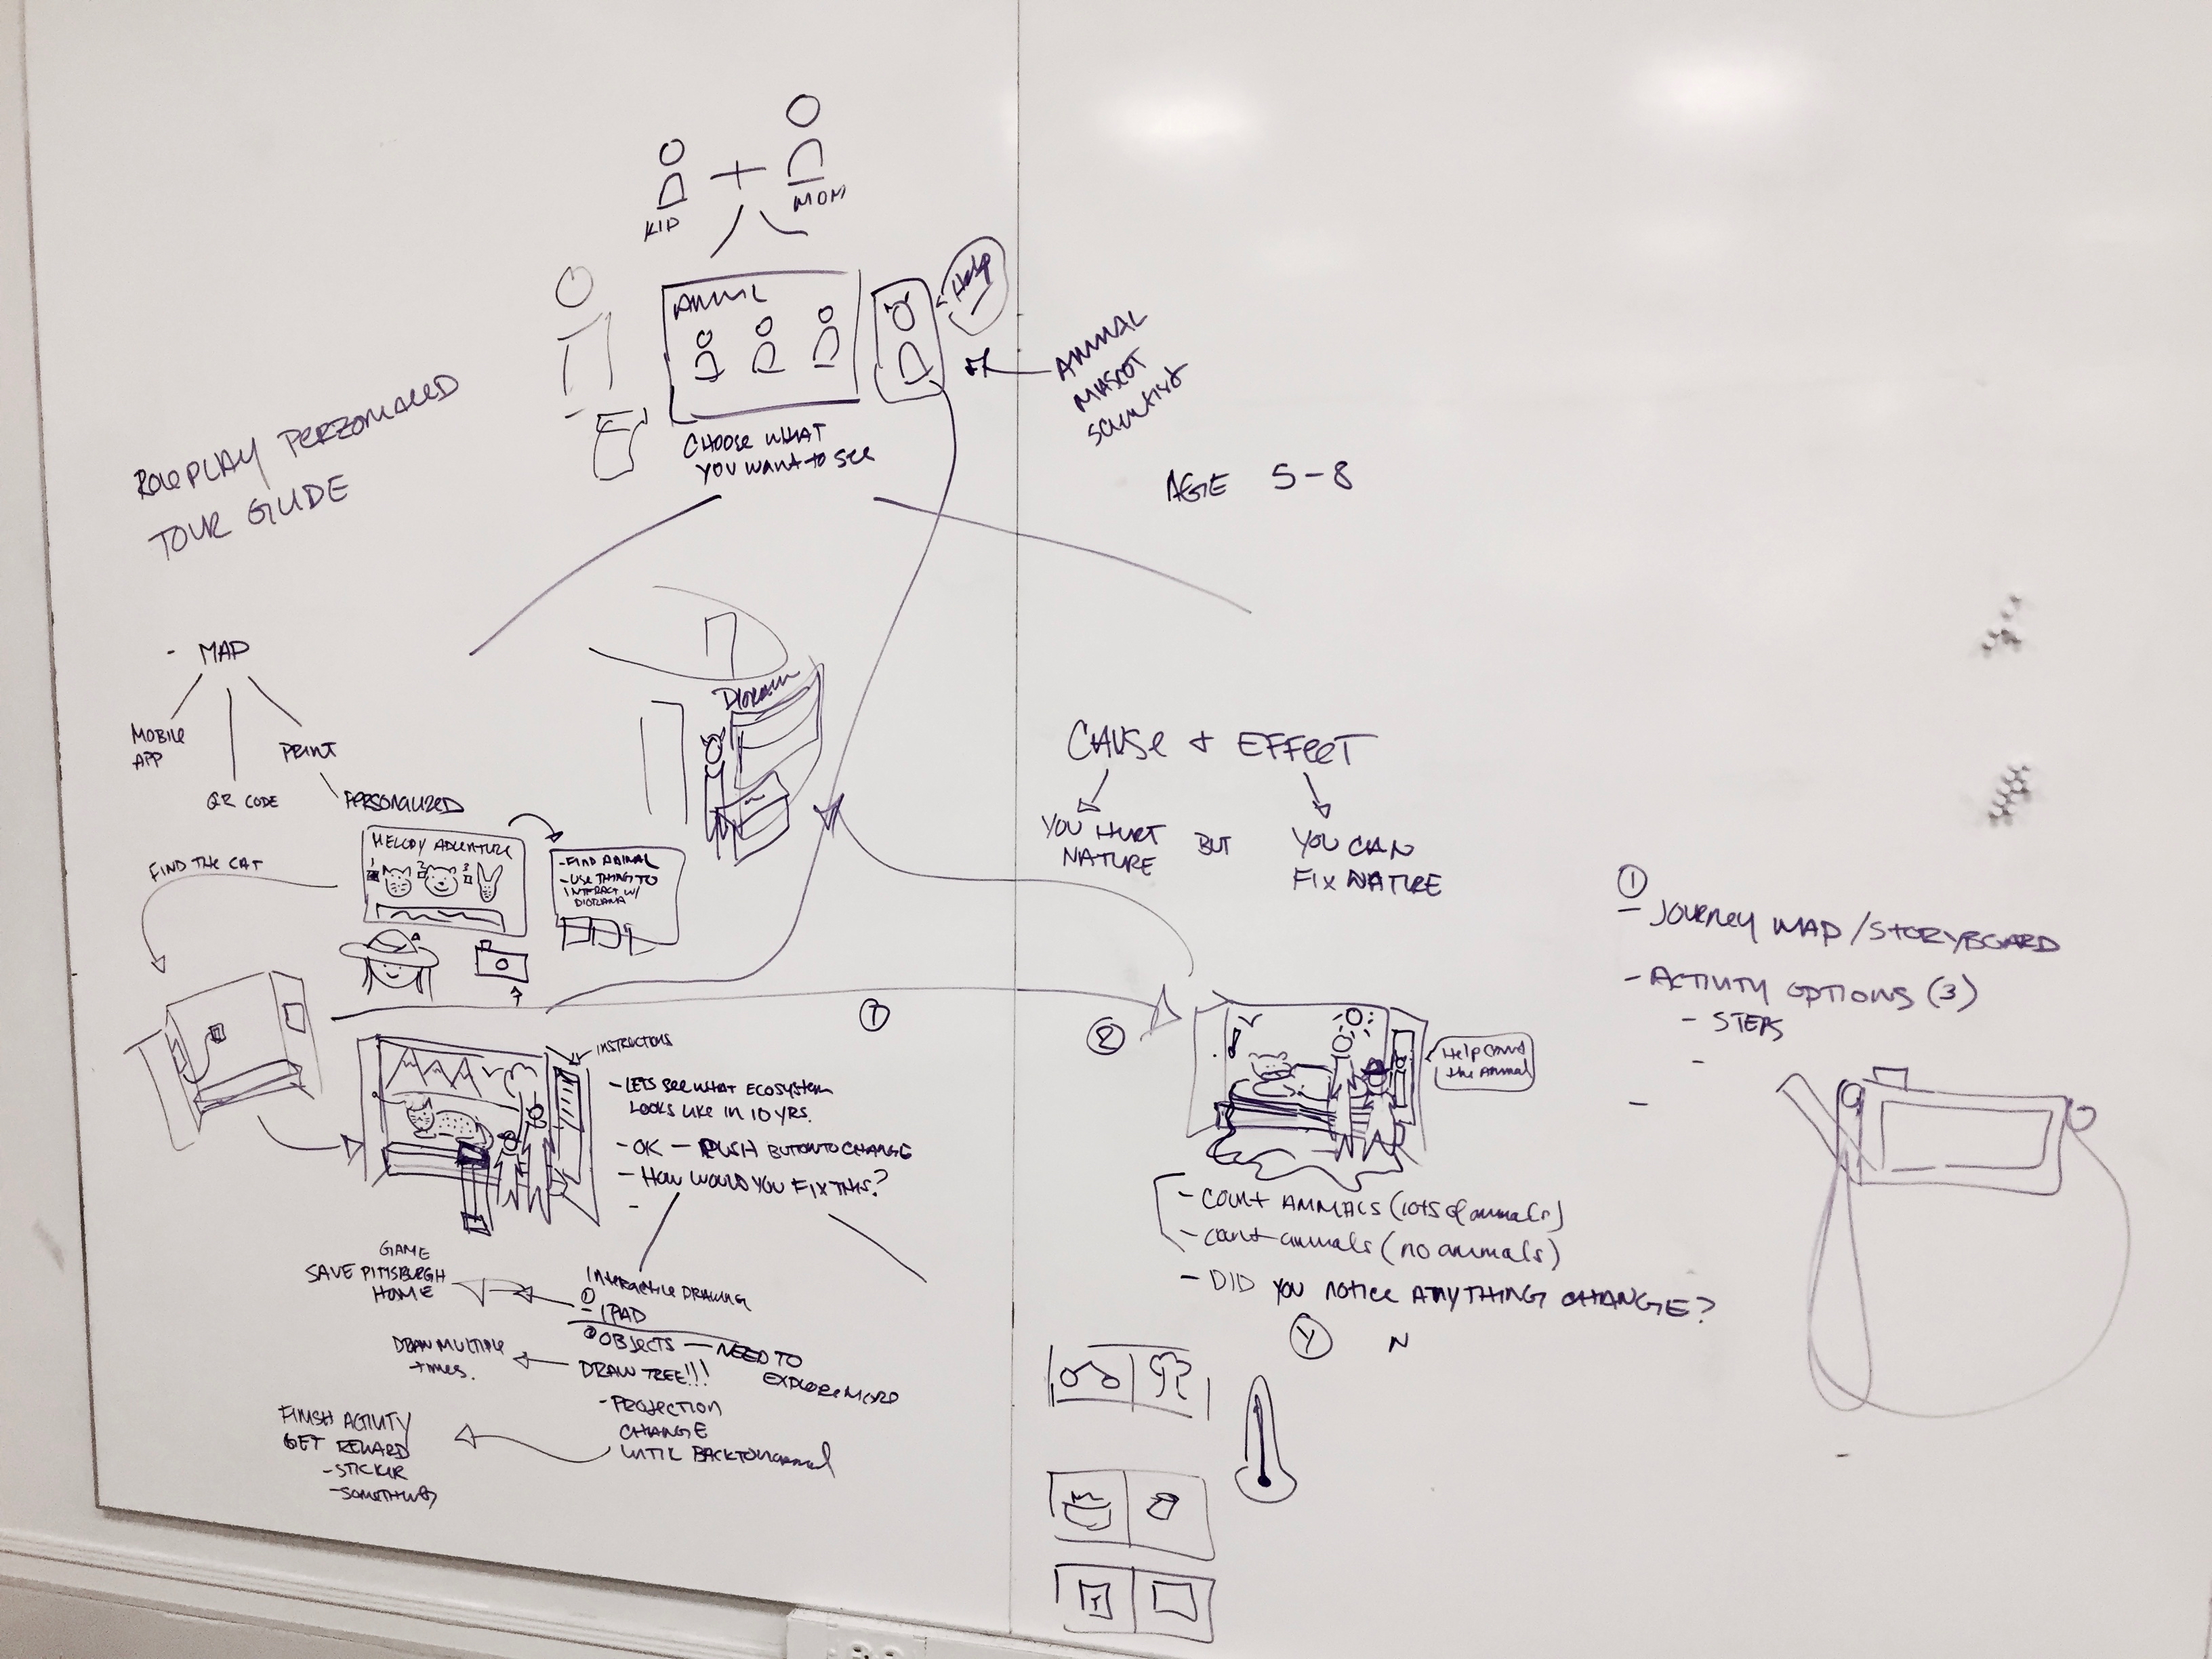 KID
+
MOM
ANIML
Help
CHOOSE WHAT
YOU WANT TO SEE
ANIMAL
MASCOT
SCIENTIST
AGE 5-8
ROLEPLAY PERZONALIZED
TOUR GUIDE
- MAP
MOBILE
APP
QR CODE
PRINT
PERSONALIZED
FIND THE CAT
MELODY ADVENTURE
1 2 3
- FIND ANIMAL
- USE THING TO
INTERACT W/
DIORAMA
DIORAMA
CAUSE + EFFECT
YOU HURT
NATURE
BUT
YOU CAN
FIX NATURE
①
- JOURNEY MAP/STORYBOARD
- ACTIVITY OPTIONS (3)
- STEPS
-
-
①
INSTRUCTIONS
- LETS SEE WHAT ECOSYSTEM
LOOKS LIKE IN 10 YRS.
- OK - PUSH BUTTON TO CHANGE
- HOW WOULD YOU FIX THIS?
-
②
Help Count
the Animal
- COUNT ANIMALS (lots of animals)
- count animals (no animals)
- DID YOU NOTICE ANYTHING CHANGE?
Y N
GAME
SAVE PITTSBURGH
HOME
INTERACTIVE DRAWING
① IPAD
② OBJECTS — NEED TO
EXPLORE MORE
DRAW TREE!!!
DRAW MULTIPLE
times.
- PROJECTION
CHANGE
UNTIL BACK TO NORMAL
FINISH ACTIVITY
GET REWARD
- STICKER
- SOMETHING